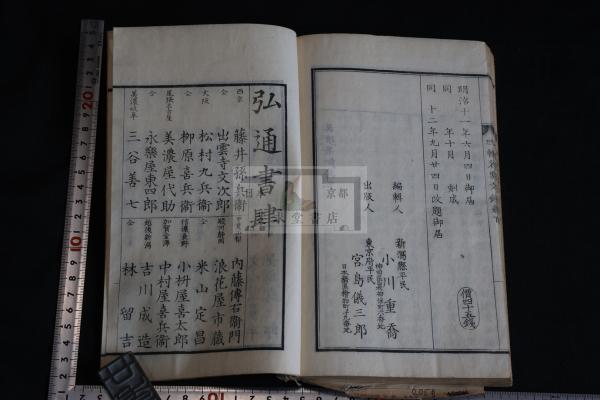 明治十一年六月四日御届
同 年十月 刻成
同 十二年九月廿四日改題御届
價四十五錢
編輯人
新潟縣平民
小川重喬
出版人
東京府平民
宮島儀三郎
弘通書肆
西京 藤井孫兵衛
仝 出雲寺文次郎
大阪 松村九兵衛
仝 柳原喜兵衛
尾張名古屋 美濃屋代助
仝 永樂屋東四郎
美濃岐阜 三谷善七
内藤傳右衛門
駿州静岡 浪花屋市蔵
仝 米山定昌
信濃長野 小枡屋喜太郎
加賀金澤 中村屋喜兵衛
越後新潟 吉川成造
仝 林留吉
京都
堂書店